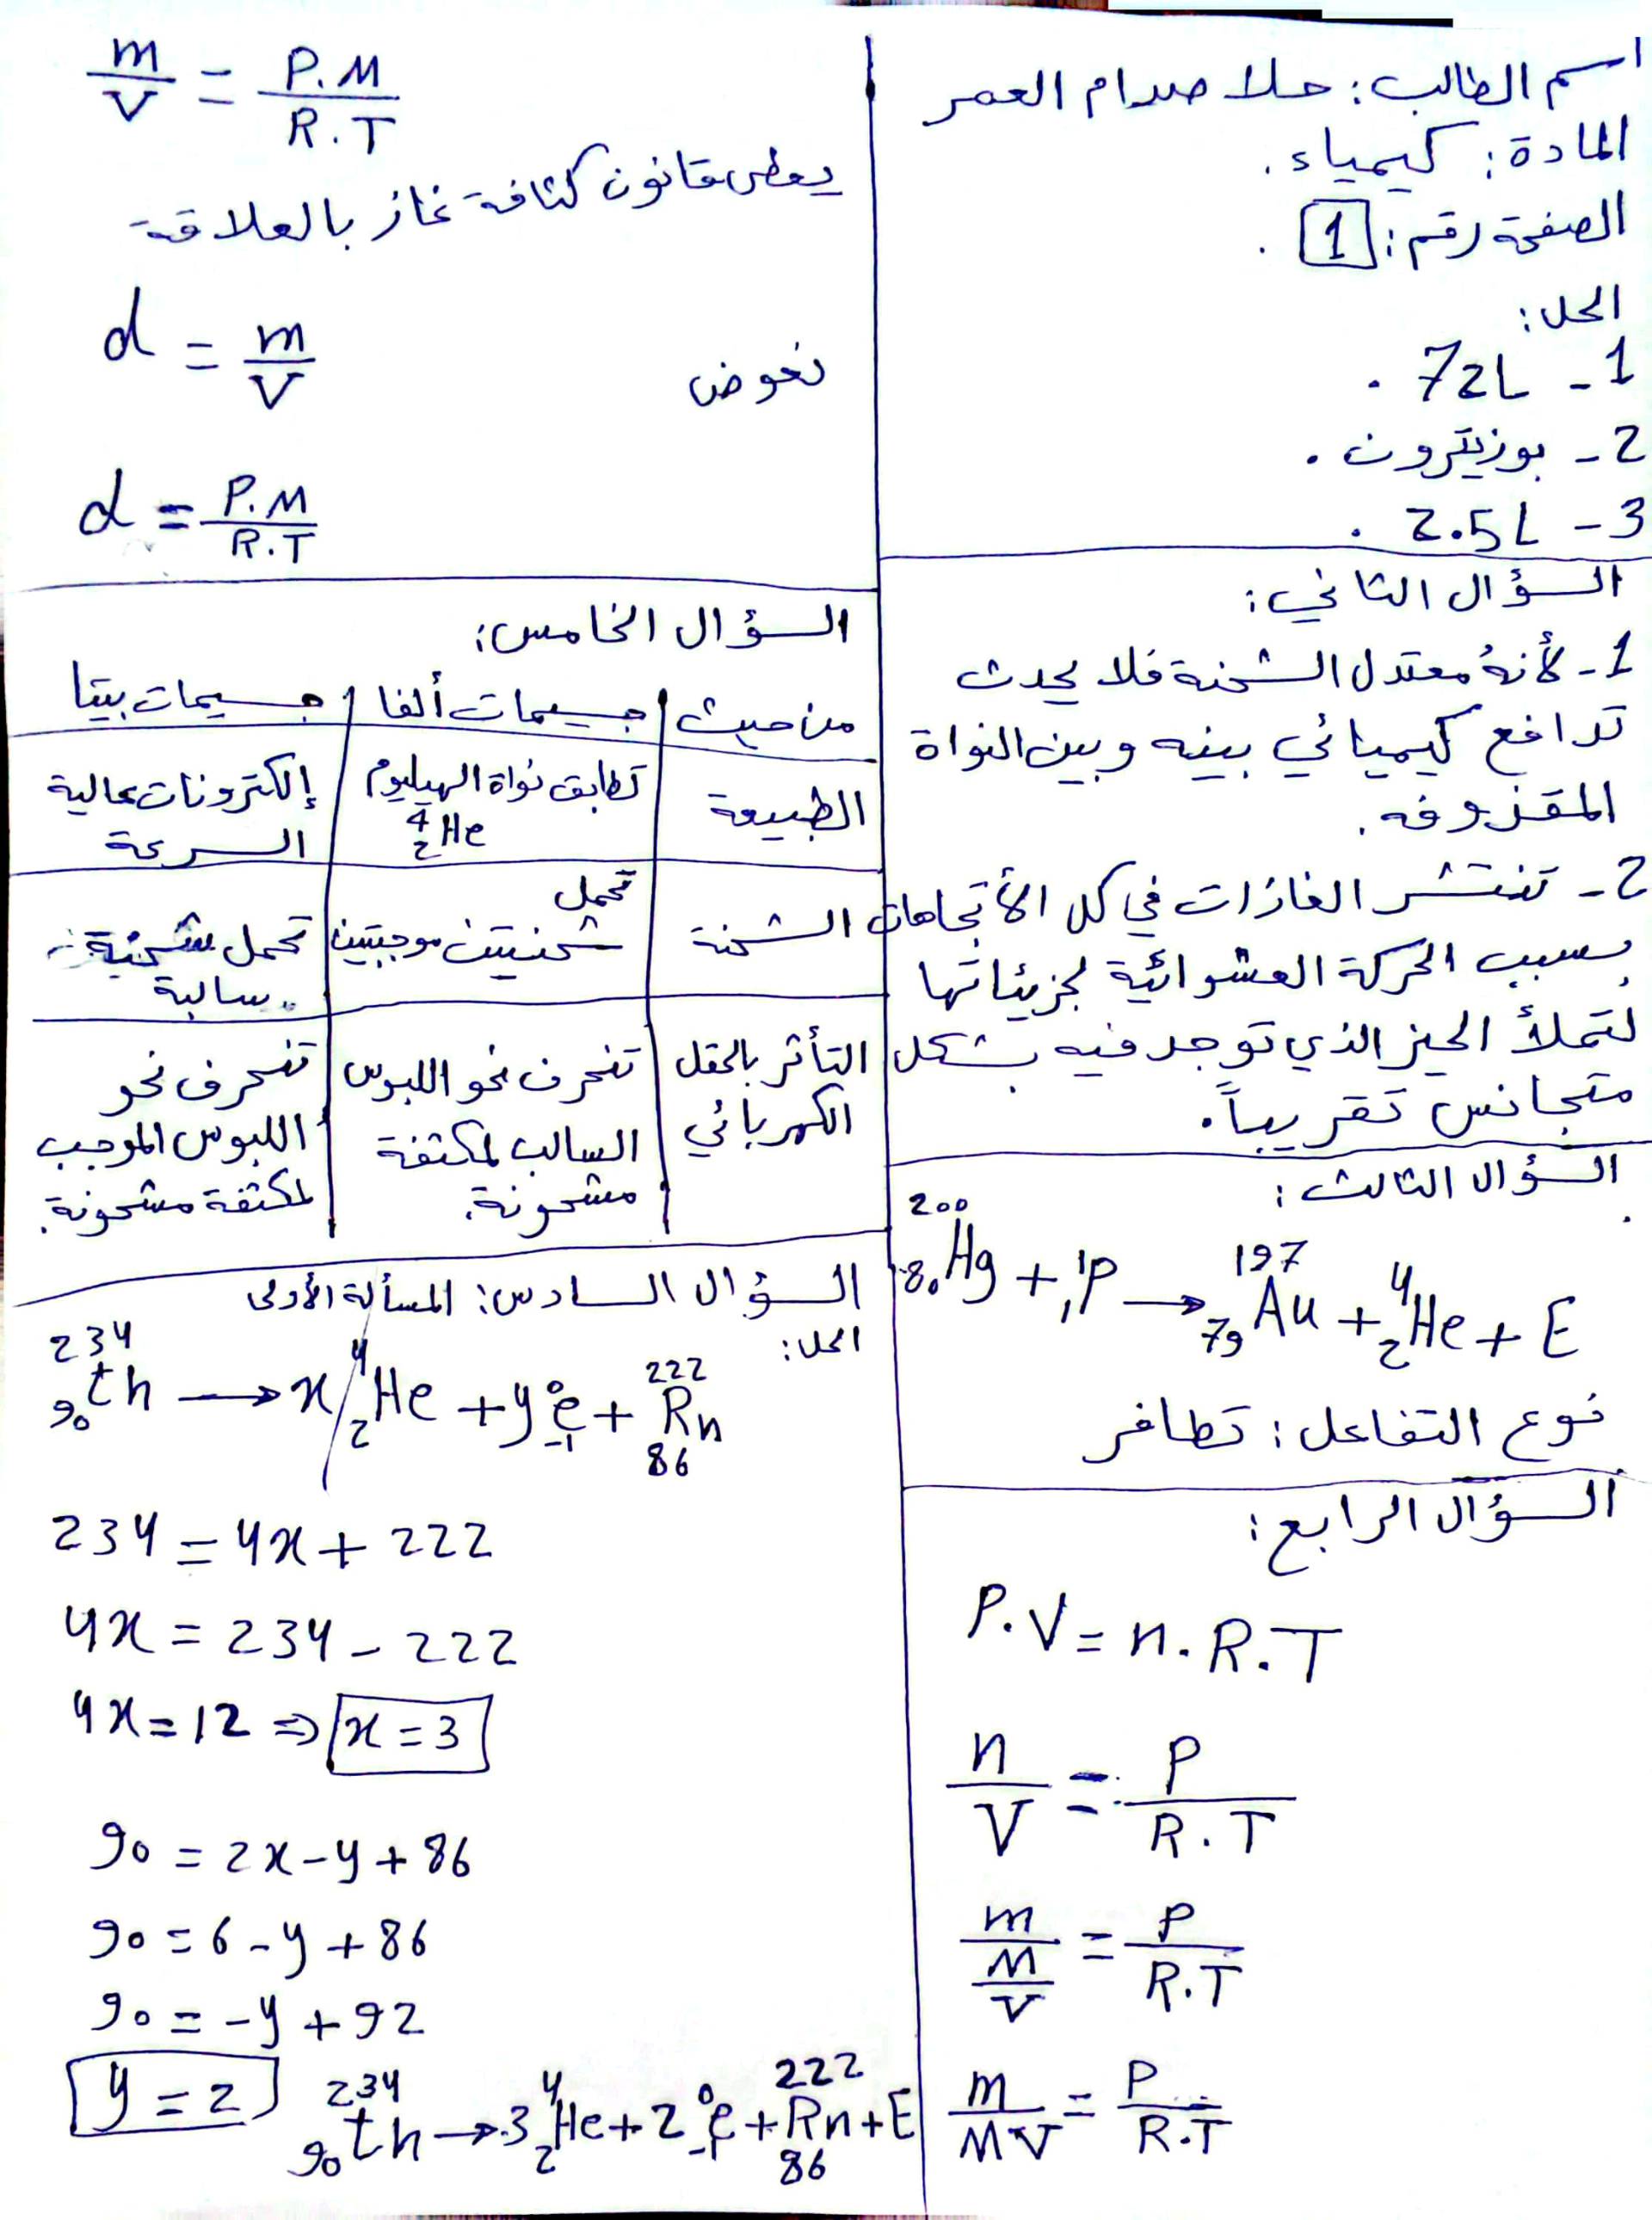 اسم الطالب: حلا صدام العمر
المادة: كيمياء.
الصفحة رقم: 1.
الحل:
1 - 72L.
2 - بوزيترون.
3 - 2.5L.
السؤال الثاني:
1 - لأنهُ معتدل الشحنة فلا يحدث
تدافع كيميائي بينه وبين النواة
المقذوفه.
2 - تنتشر الغازات في كل الأتجاهات
بسبب الحركة العشوائية لجزيئاتها
لتملأ الحيز الذي توجد فيه بشكل
متجانس تقريباً.
السؤال الثالث:
²⁰⁰₈₀Hg + ¹₁P → ¹⁹⁷₇₉Au + ⁴₂He + E
نوع التفاعل: تطافر
السؤال الرابع:
P.V = n.R.T
n/V = P/R.T
m/M/V = P/R.T
m/MV = P/R.T
m/V = P.M/R.T
يعطى قانون كثافة غاز بالعلاقة
d = m/V نعوض
d = P.M/R.T
السؤال الخامس:
من حيث | جسيمات ألفا | جسيمات بيتا
الطبيعة | تطابق نواة الهيليوم ⁴₂He | إلكترونات عالية السرعة
الشحنة | تحمل شحنيتين موجبتين | تحمل شحنة سالبة
التأثر بالحقل الكهربائي | تنحرف نحو اللبوس السالب لمكثفة مشحونة. | تنحرف نحو اللبوس الموجب لمكثفة مشحونة.
السؤال السادس: المسألة الأولى
الحل:
²³⁴₉₀th → x ⁴₂He + y ⁰₋₁e + ²²²₈₆Rn
234 = 4x + 222
4x = 234 - 222
4x = 12 ⇒ x = 3
90 = 2x - y + 86
90 = 6 - y + 86
90 = -y + 92
y = 2
²³⁴₉₀th → 3 ⁴₂He + 2 ⁰₋₁e + ²²²₈₆Rn + E